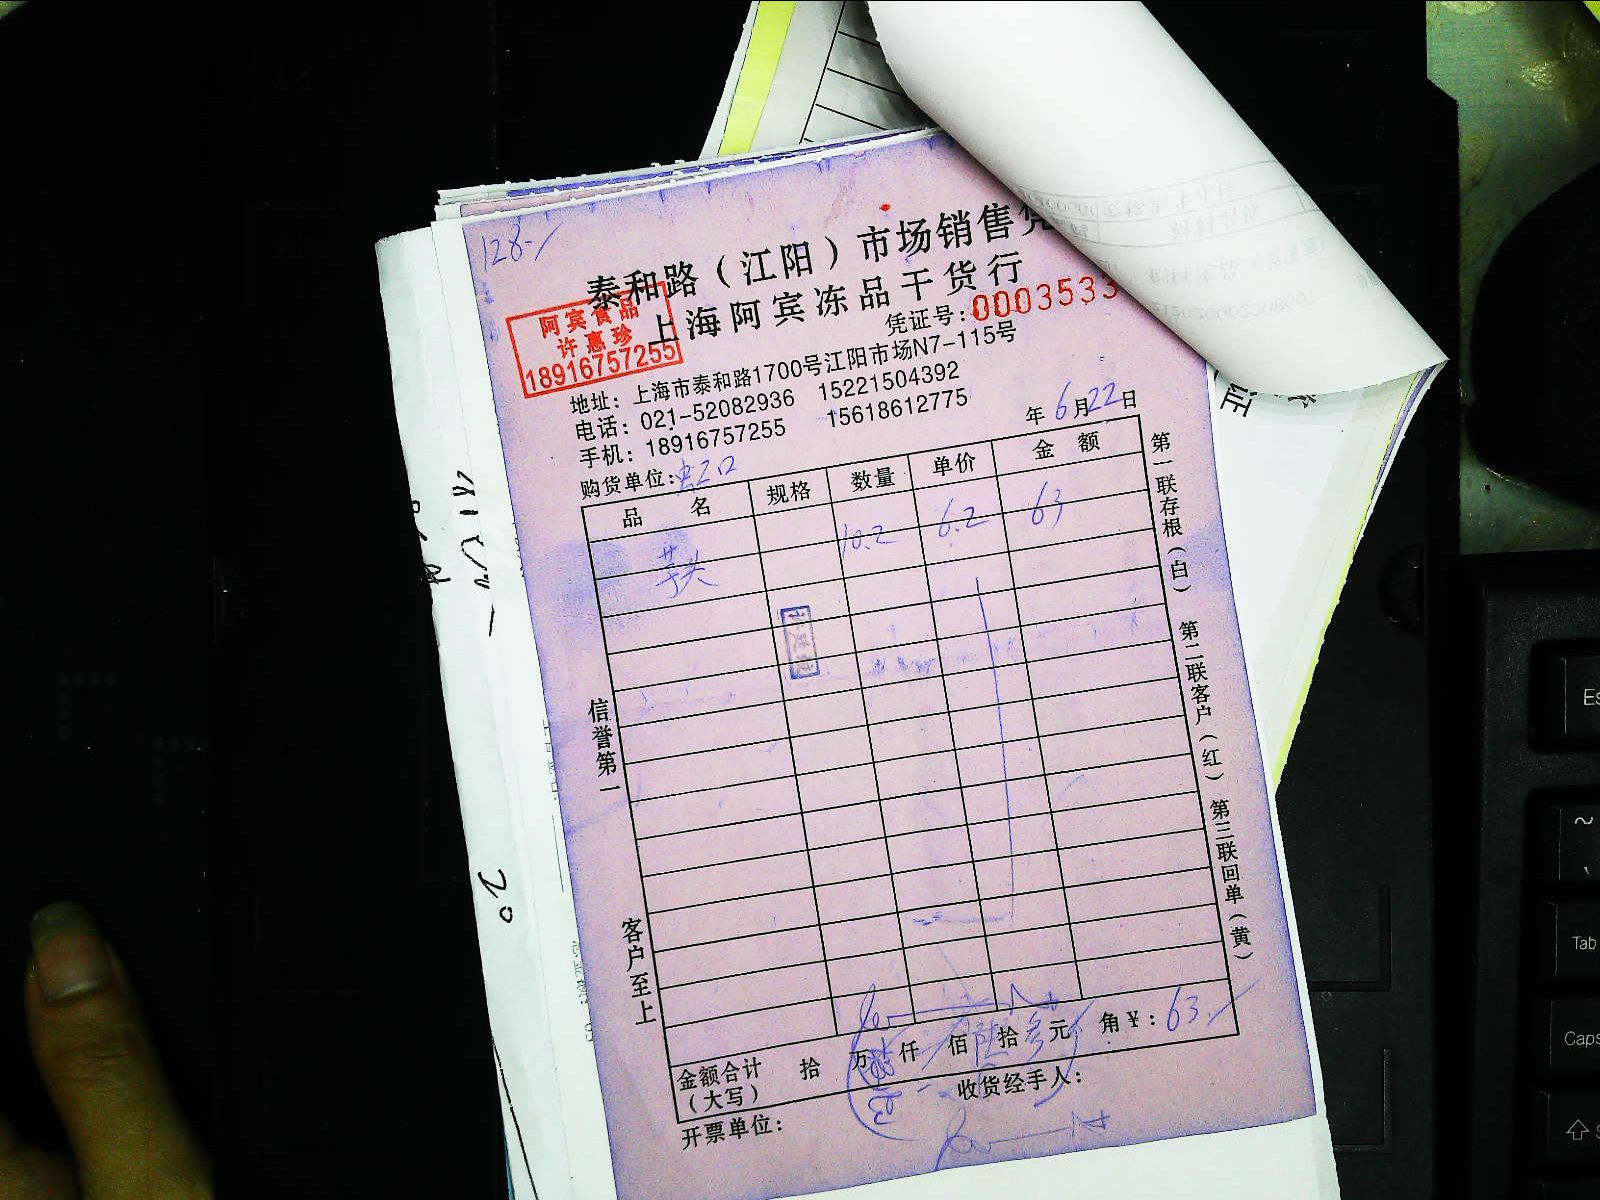 128-/
泰和路（江阳）市场销售凭
上海阿宾冻品干货行
阿宾食品
许惠珍
18916757255
凭证号：0003533
地址：上海市泰和路1700号江阳市场N7-115号
电话：021-52082936 15221504392
手机：18916757255 15618612775
年6月22日
购货单位：虹口
品名 规格 数量 单价 金额
芋头 10.2 6.2 63
信誉第一
客户至上
第一联存根（白） 第二联客户（红） 第三联回单（黄）
金额合计（大写） 拾 万 仟 佰 陆拾 叁元 角 ￥：63./
开票单位：
收货经手人：
20
Es
~
Tab
Caps